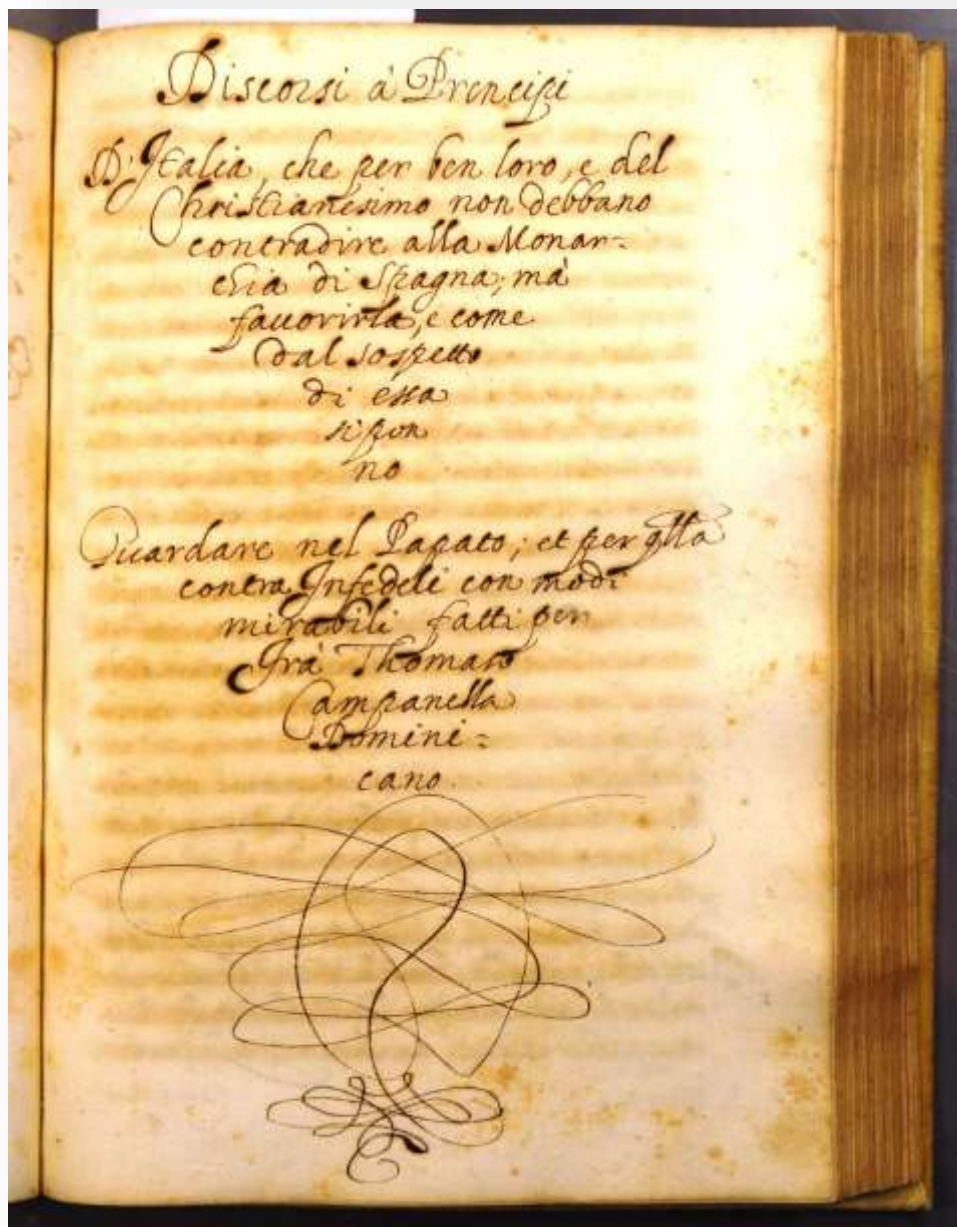 Discorsi à Prencipi
D'Italia, che per ben loro, e del
Christianesimo non debbano
contradire alla Monar=
chia di Spagna, mà
fauorirla, e come
dal sospetto
di essa
si pon
no
Guardare nel Papato; et per qlla
contra Infedeli con modi
mirabili fatti per
Frà Thomaso
Campanella
Domini=
cano.